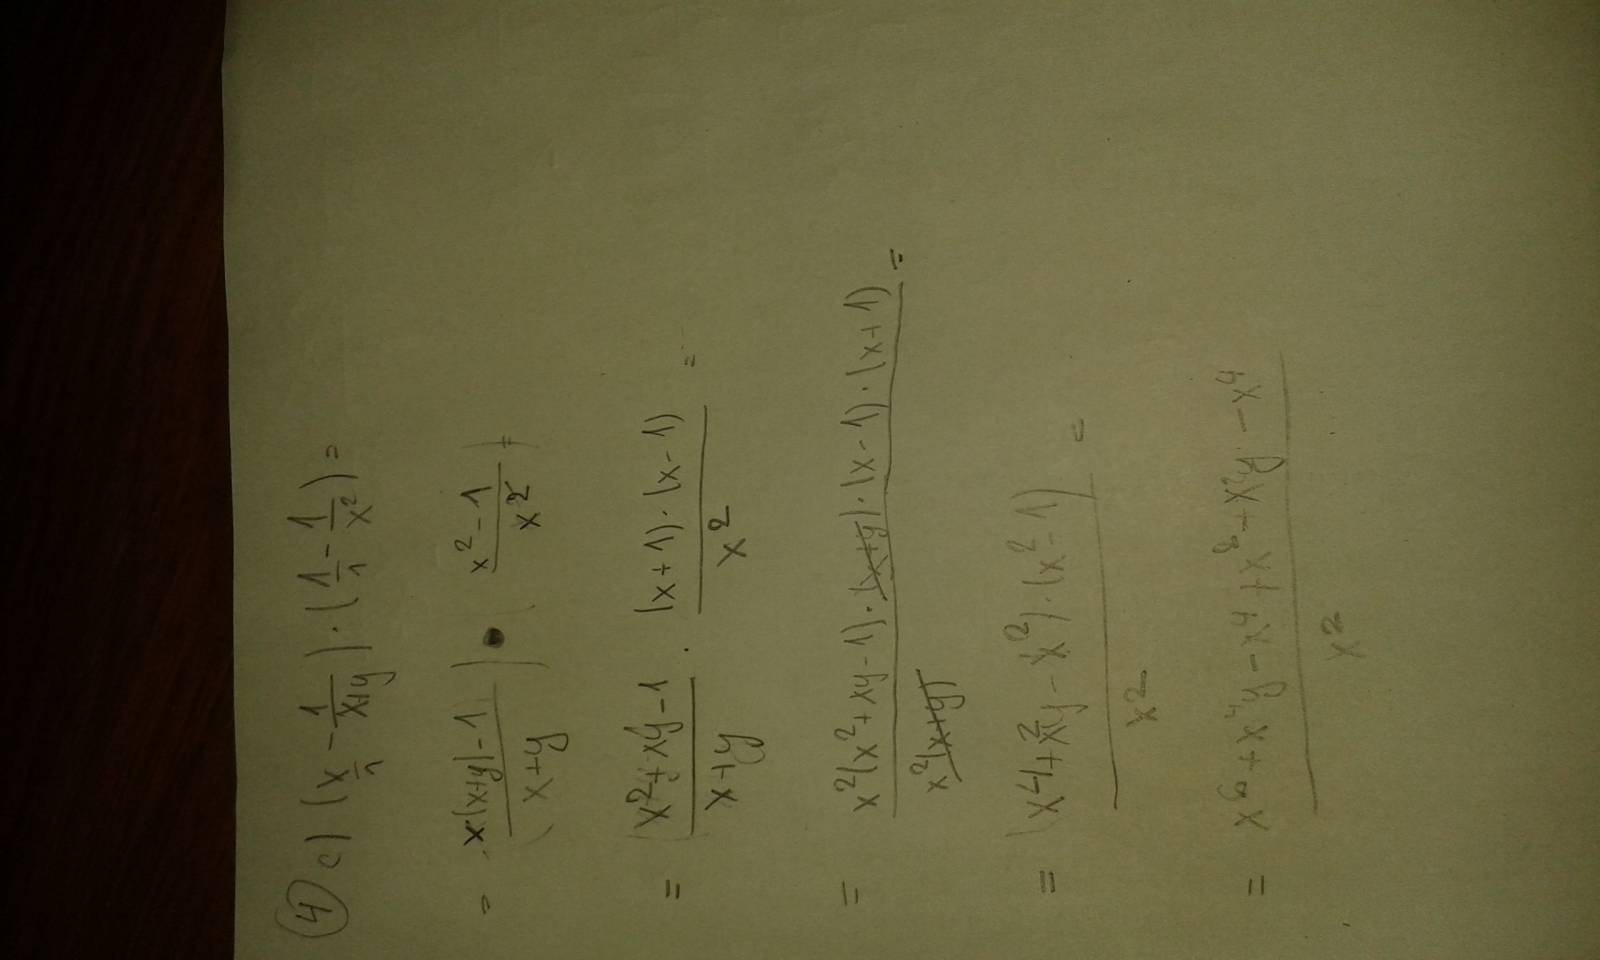 (4) c) (x/1 - 1/(x+y)) · (1/1 - 1/x²) =
= (x(x+y)-1)/(x+y) · (x²-1)/x² =
= (x²+xy-1)/(x+y) · ((x+1)·(x-1))/x² =
= (x²(x²+xy-1)·(x+y)·(x-1)·(x+1))/(x²(x+y)) =
= ((x⁴+x²y-x²)·(x²-1))/x² =
= (x⁶+x⁴y-x⁴+x⁸+x²y-x⁴)/x²